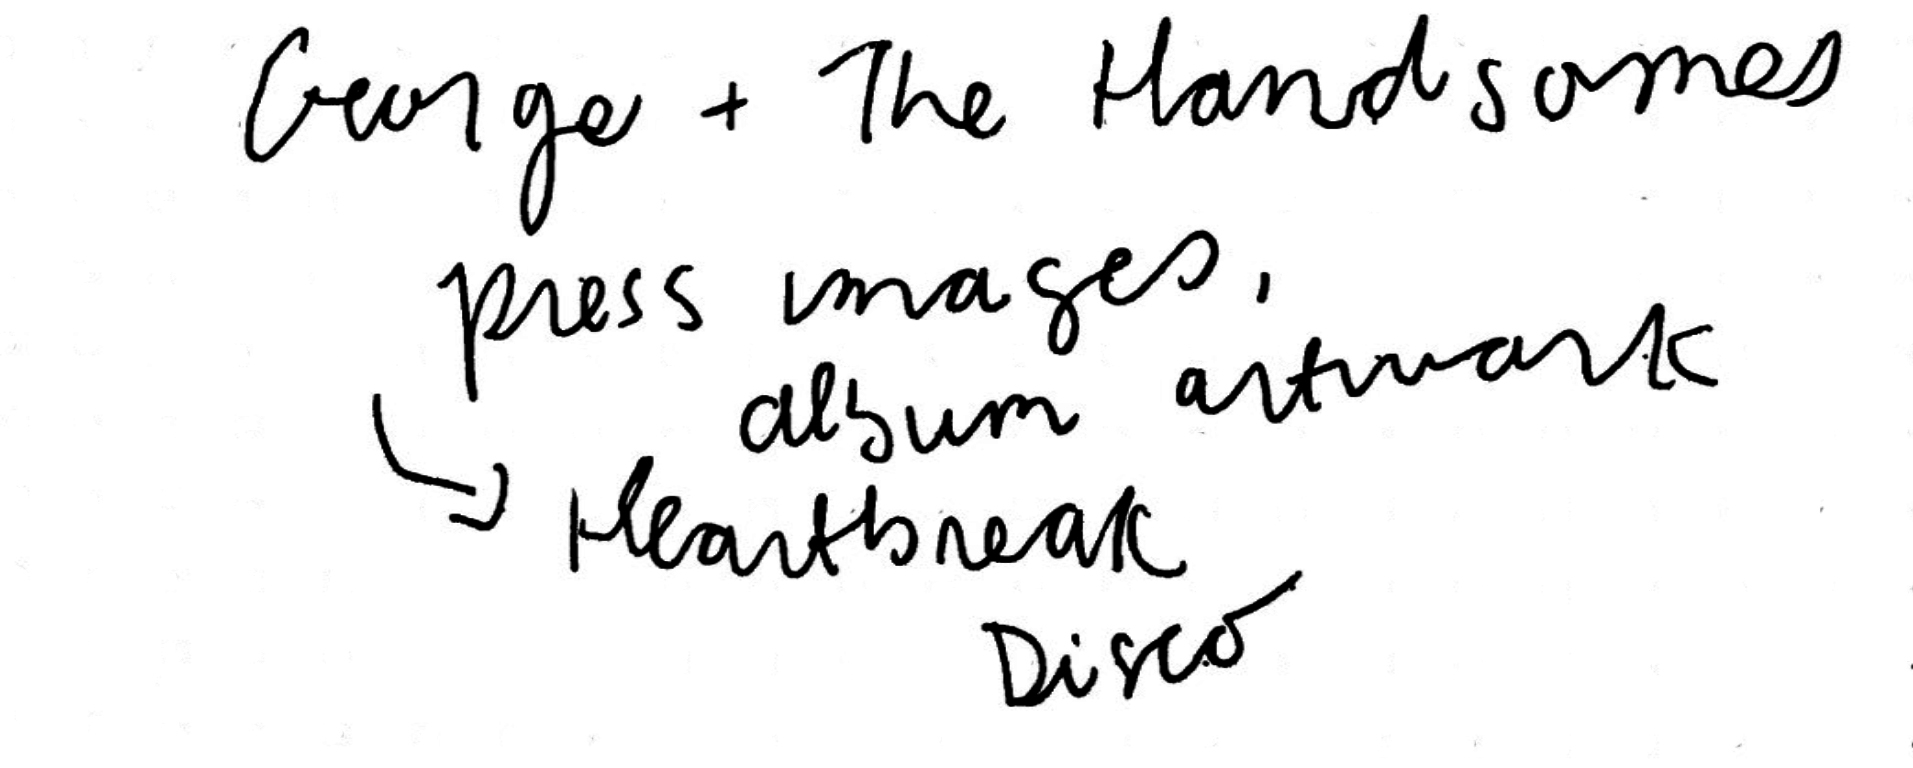 George + The Handsomes
press images,
album artwork
→ Heartbreak
Disco